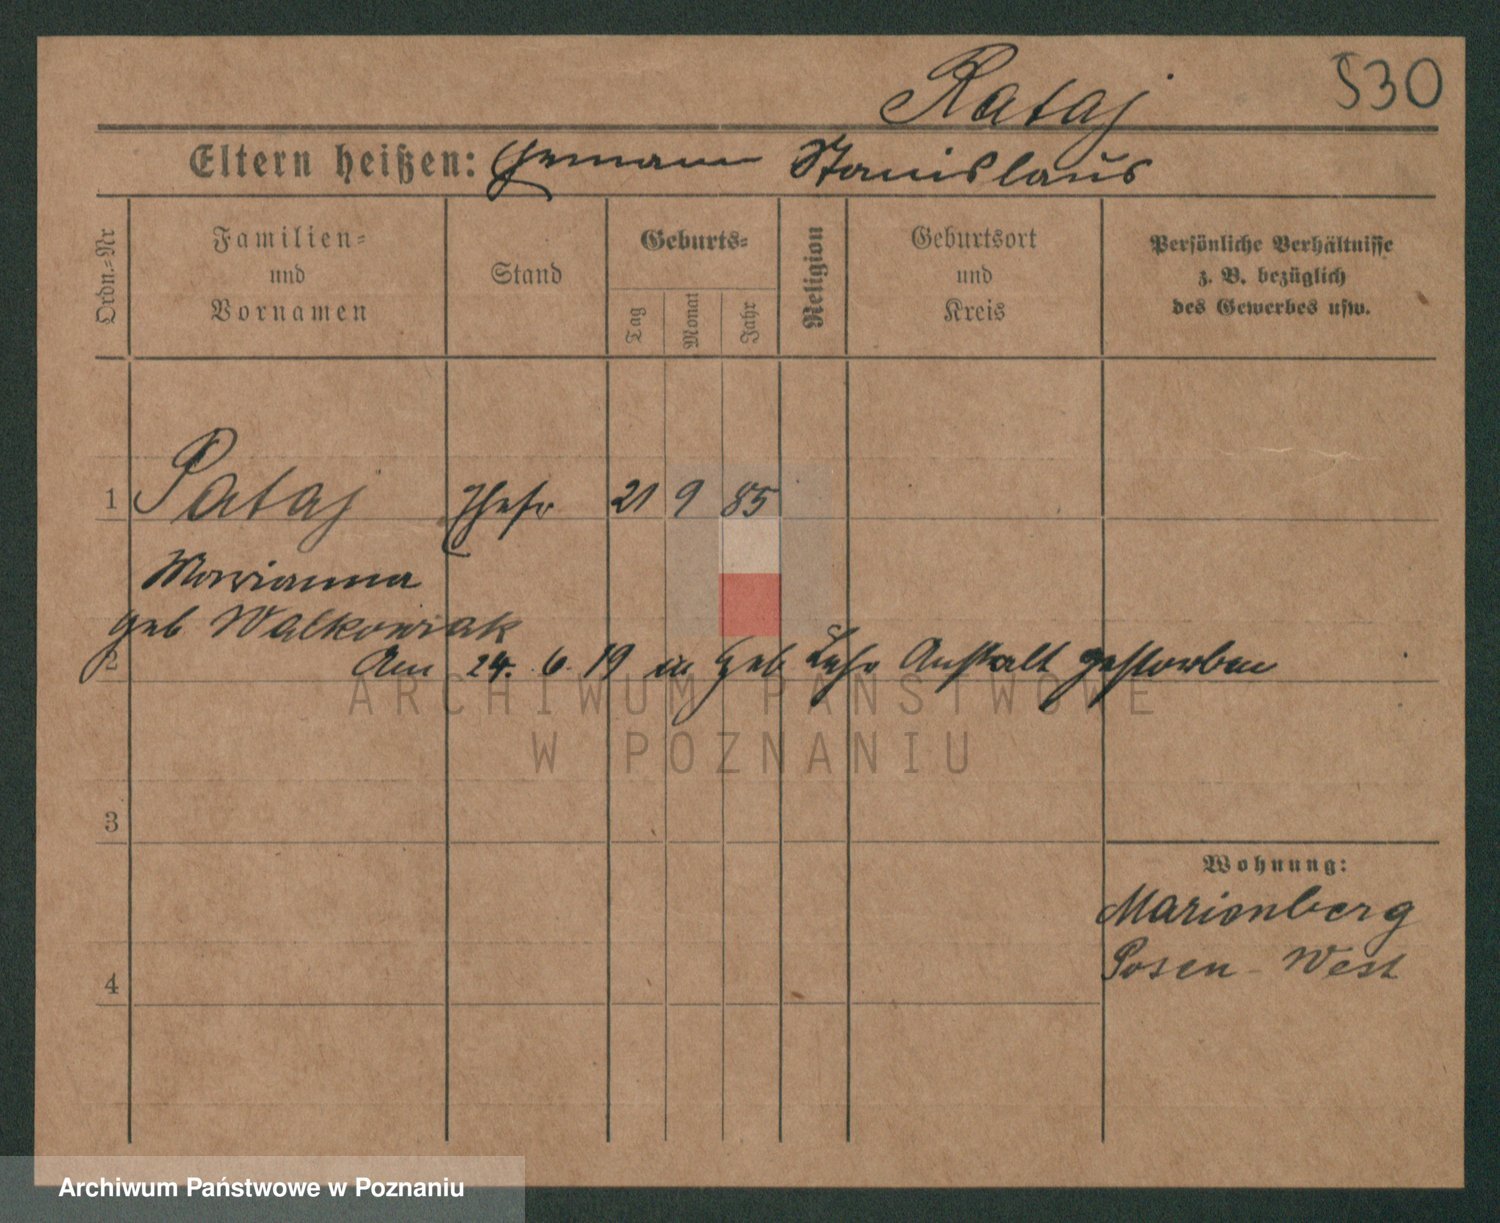 530
Rataj
Eltern heißen: Ehemann Stanislaus
Ordn.-Nr
Familien-
und
Vornamen
Stand
Geburts-
Tag
Monat
Jahr
Religion
Geburtsort
und
Kreis
Persönliche Verhältnisse
z. B. bezüglich
des Gewerbes usw.
1 Rataj Ehefr 21 9 85
Marianna
geb Walkowiak
2 Am 24. 6. 19 in Geb Lehr Anstalt gestorben
ARCHIWUM PAŃSTWOWE
W POZNANIU
3
Wohnung:
Marienberg
Posen-West
4
Archiwum Państwowe w Poznaniu